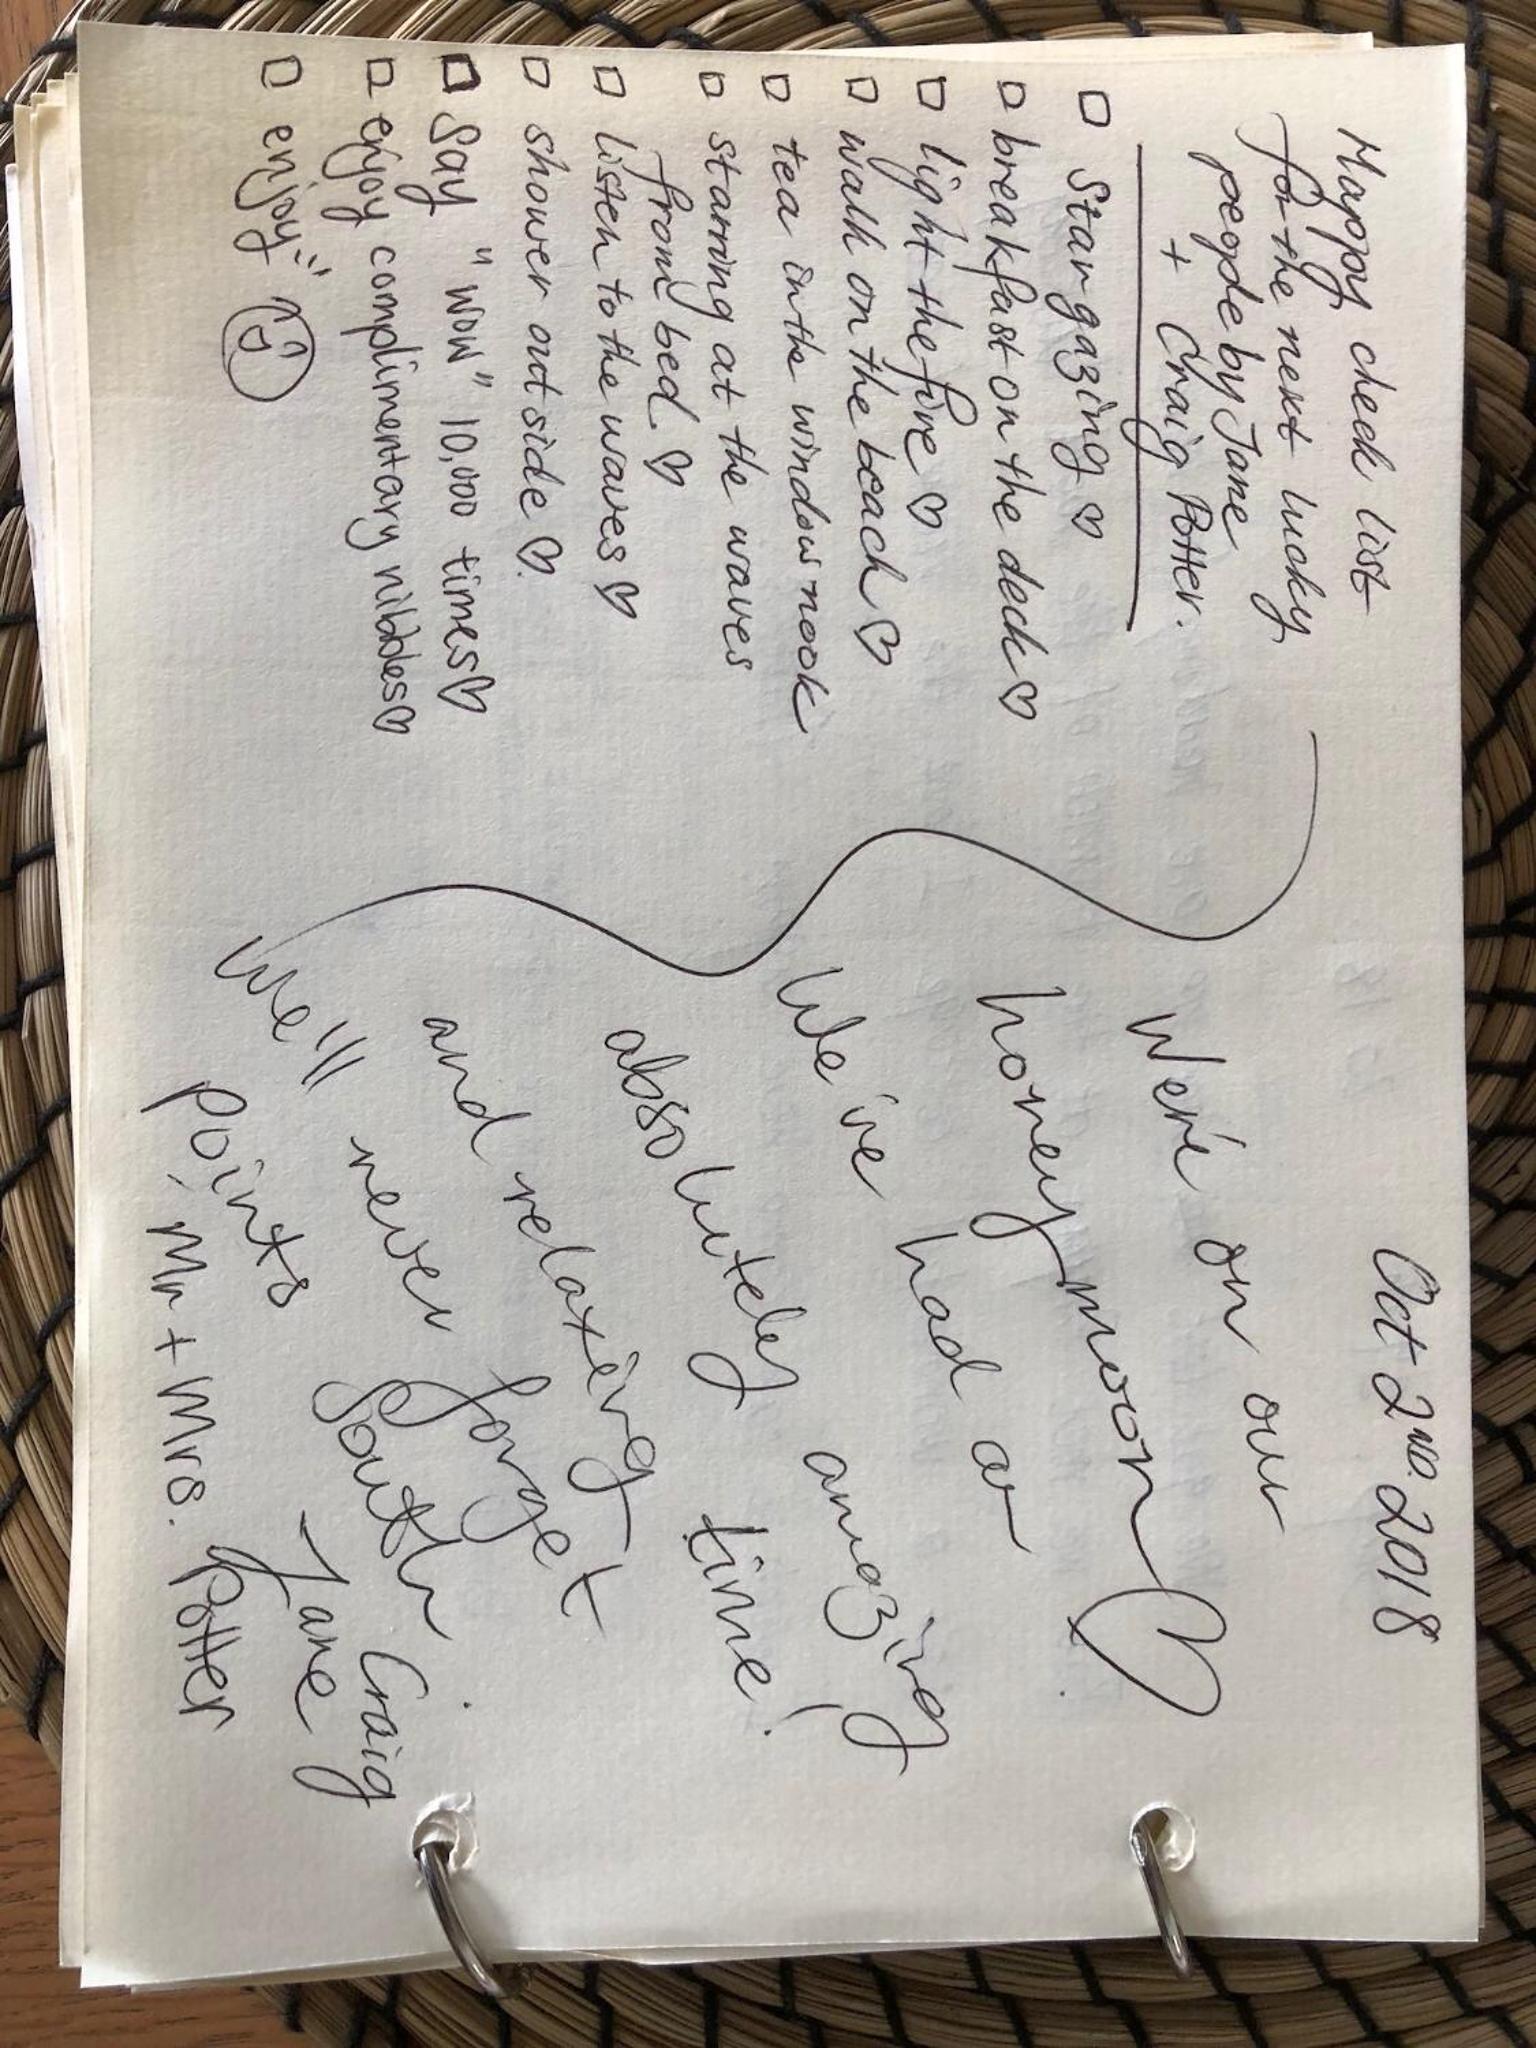 Happy check list
for the next lucky
people by Jane
+ Craig Potter.
□ Stargazing ♡
□ breakfast on the deck ♡
□ light the fire ♡
□ walk on the beach ♡
□ tea in the window nook
□ starring at the waves
from bed ♡
□ listen to the waves ♡
□ shower outside ♡.
□ Say "wow" 10,000 times ♡
□ enjoy complimentary nibbles ♡
□ enjoy"
Oct 2ND. 2018
We're on our
honeymoon ♡
We've had a
absolutely amazing
and relaxing time!
We'll never forget
South
Points.
Craig
- Jane
Mr + Mrs. Potter